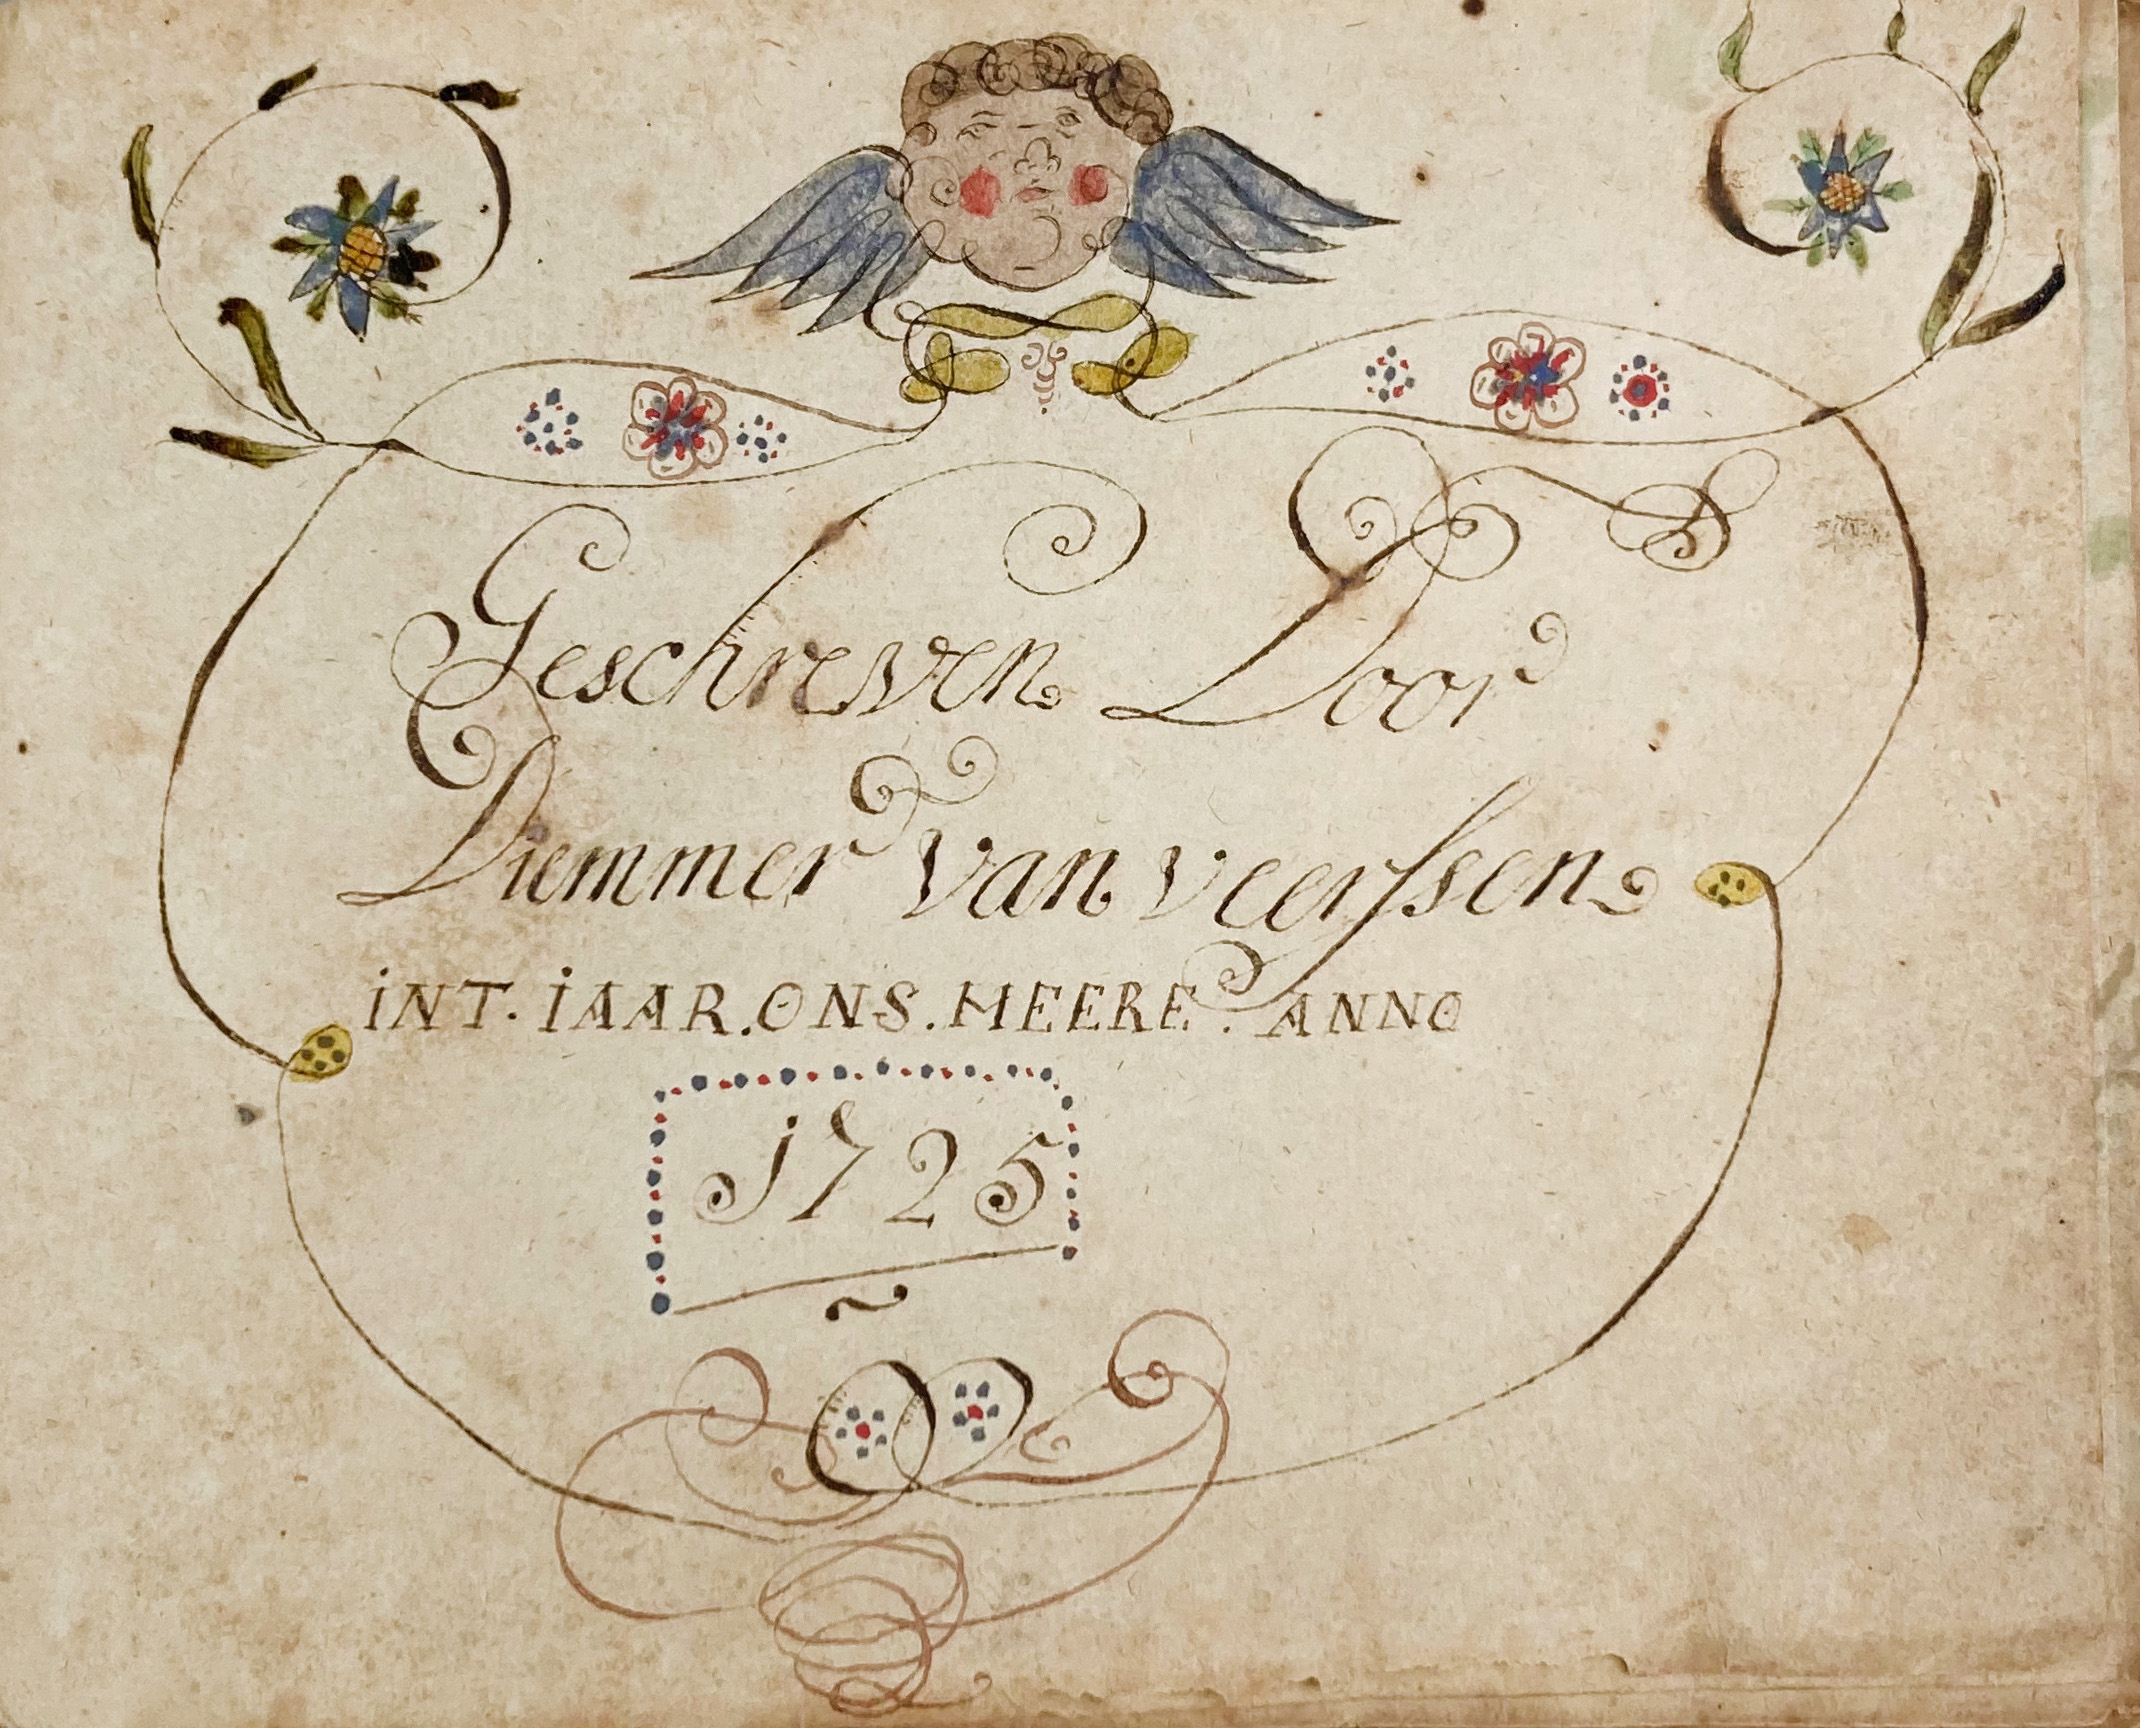 Geschreven Door
Diemmer van veerssen
INT. IAAR. ONS. HEERE. ANNO
1725